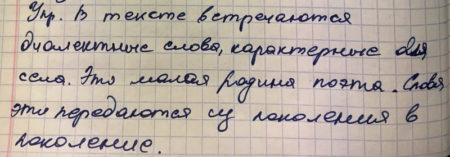 Упр. В тексте встречаются
диалектные слова, характерные для
села. Это малая родина поэта. Слова
эти передаются из поколения в
поколение.